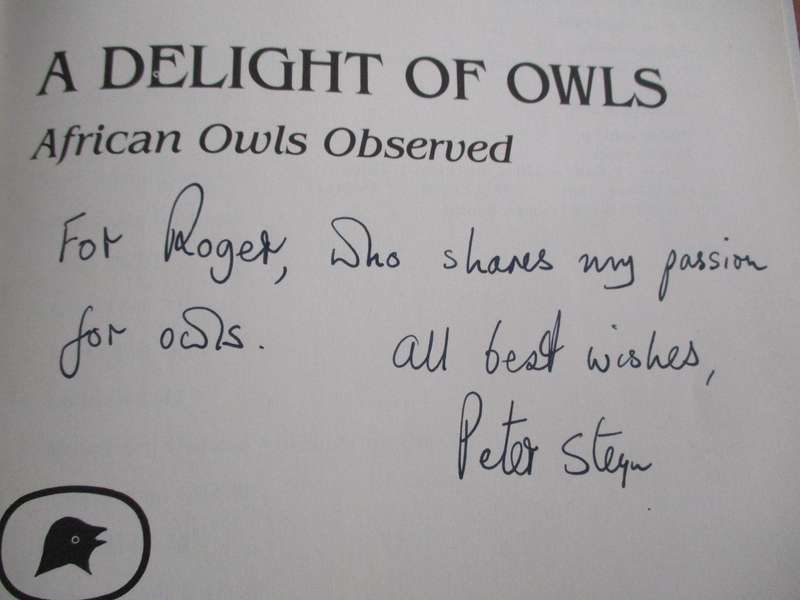 A DELIGHT OF OWLS
African Owls Observed
For Roger, who shares my passion
for owls.
All best wishes,
Peter Steyn